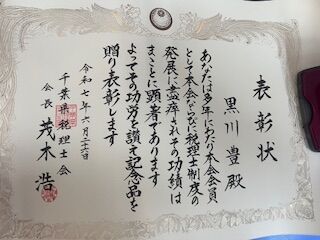 表彰状
黒川豊殿
あなたは多年にわたり本会会員
として本会ならびに税理士制度の
発展に盡瘁されその功績は
まことに顕著であります
よってその功労を讃え記念品を
贈り表彰します
令和七年六月二十六日
千葉県税理士会
会長 茂木浩